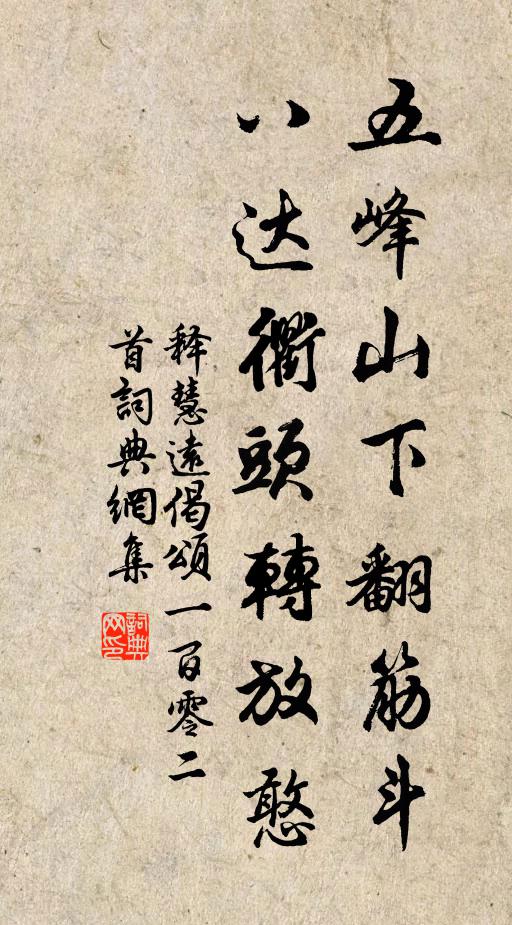 五峰山下翻筋斗
八达衢頭轉放憨
释慧遠偈頌一百零二
首詞典網集
詞典
网印